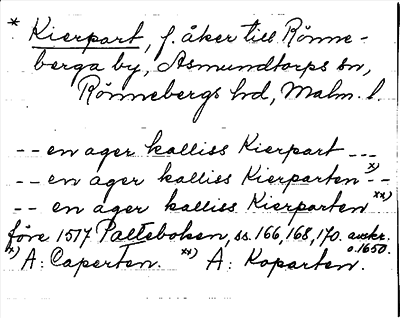 * Kierpart, f. åker till Rönne-
berga by, Asmundtorps sn,
Rönnebergs hd, Malm. l.
-- en ager kalliss Kierpart ---
-- en ager kalliss Kierparten x) --
-- en ager kalliss Kierparten xx)
före 1517 Palteboken, ss. 166, 168, 170. avskr.
o. 1650.
x) A: Caperten. xx) A: Koparten.